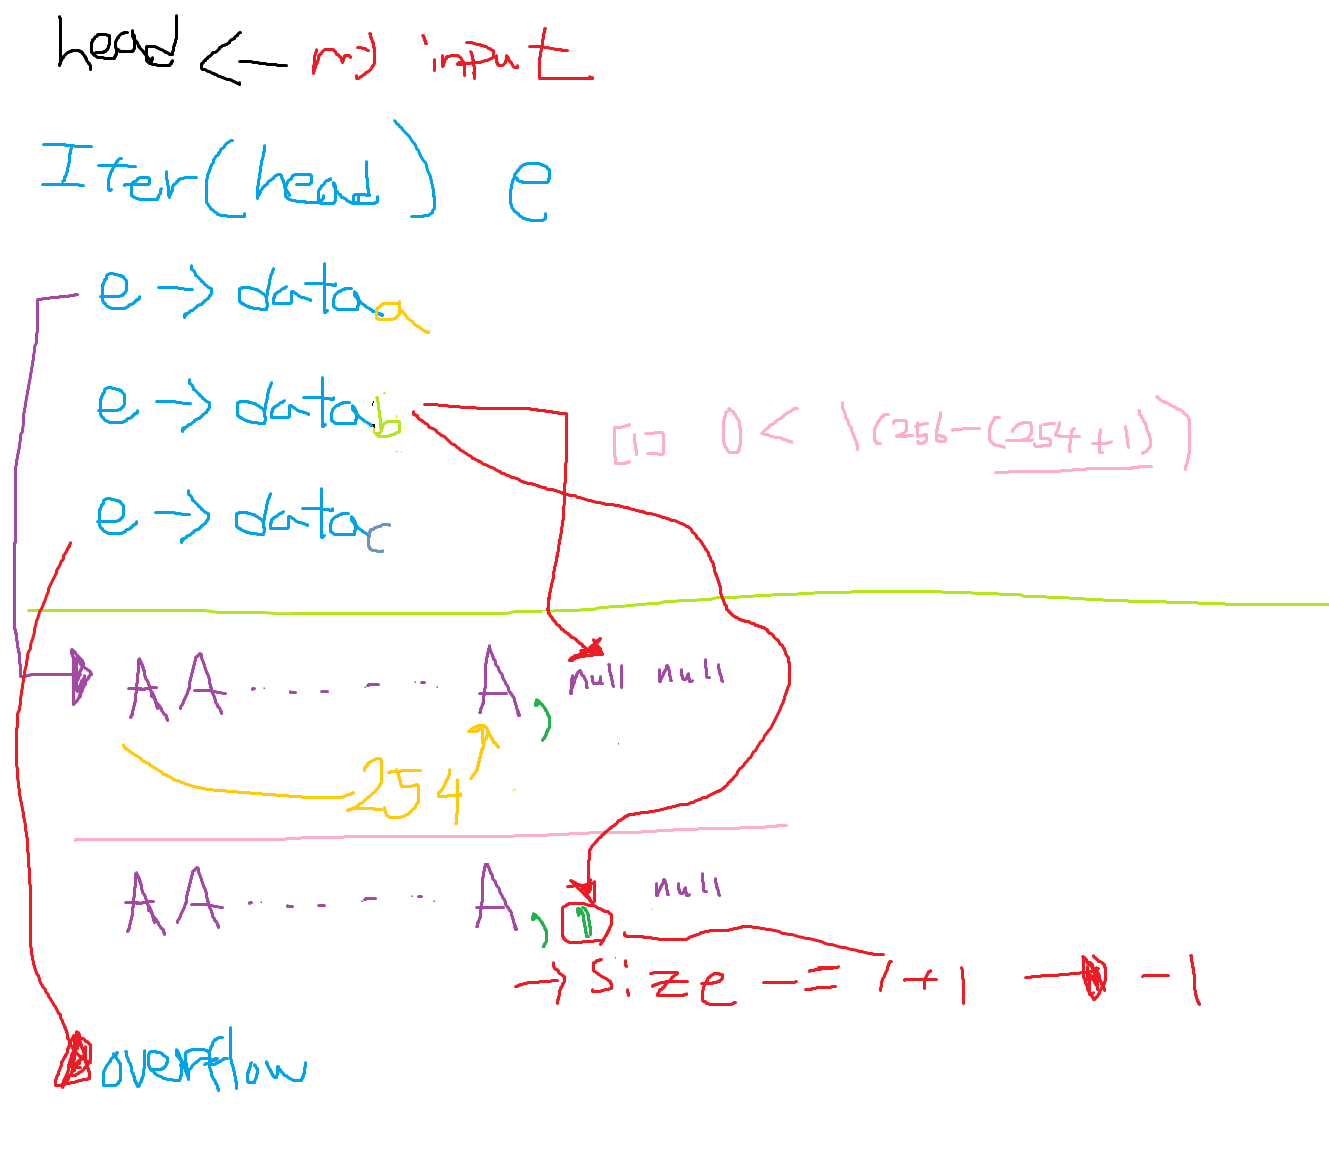 head <- my input
Iter(head) e
e -> data a
e -> data b
[1] 0 < \(256-(254+1))
e -> data c
AA ....... A, null null
254
AA ....... A, 1 null
-> Size -= 1+1 -> -1
overflow